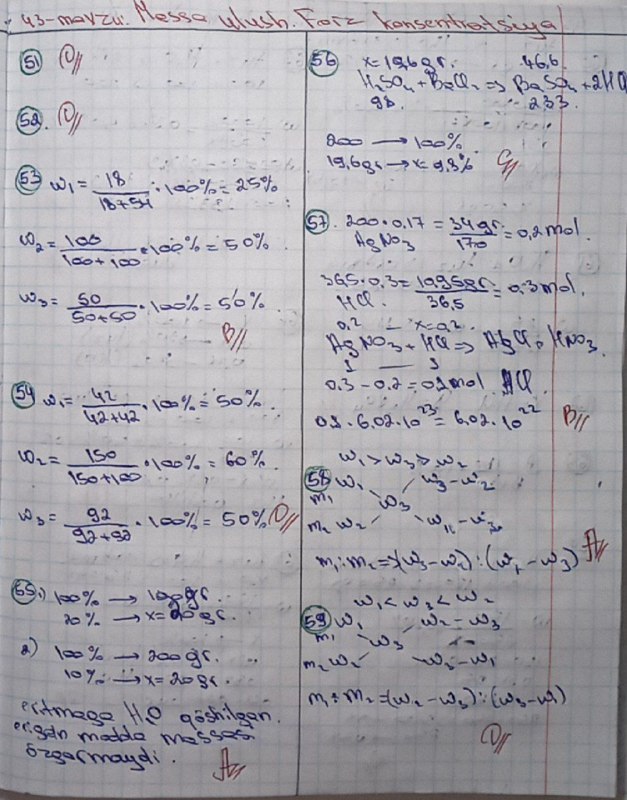 43-mavzu: Massa ulush. Foiz konsentratsiya
51 D//
52. D//
53 ω₁ = 18/(18+54) · 100% = 25%
ω₂ = 100/(100+100) · 100% = 50%
ω₃ = 50/(50+50) · 100% = 50%
B//
54 ω₁ = 42/(42+42) · 100% = 50%
ω₂ = 150/(150+100) · 100% = 60%
ω₃ = 92/(92+92) · 100% = 50% D//
55. 1) 100% → 100gr.
20% → x=20gr.
2) 100% → 200gr.
10% → x=20gr.
eritmaga H₂O qöshilgan.
erigan modda massasi
özgarmaydi. A//
56 x=19,6gr. 46,6
H₂SO₄+BaCl₂ => BaSO₄+2HCl
98 233
200 → 100%
19,6gr → x=9,8% C//
57. 200·0,17 = 34gr/170 = 0,2mol.
AgNO₃
36,5·0,3 = 10,95gr/36,5 = 0,3mol.
HCl.
0,2 — x=0,2
AgNO₃ + HCl => AgCl + HNO₃
1 — 1
0,3-0,2=0,1mol HCl.
0,1·6,02·10²³=6,02·10²² B//
ω₁ > ω₃ > ω₂
58 ω₁ ω₃-ω₂
m₁ ω₃
m₂ ω₂ ω₁-ω₃
m₁:m₂=(ω₃-ω₂):(ω₁-ω₃) A//
ω₁ < ω₃ < ω₂
59 ω₁ ω₂-ω₃
m₁ ω₃
m₂ ω₂ ω₃-ω₁
m₁:m₂=(ω₂-ω₃):(ω₃-ω₁)
D//